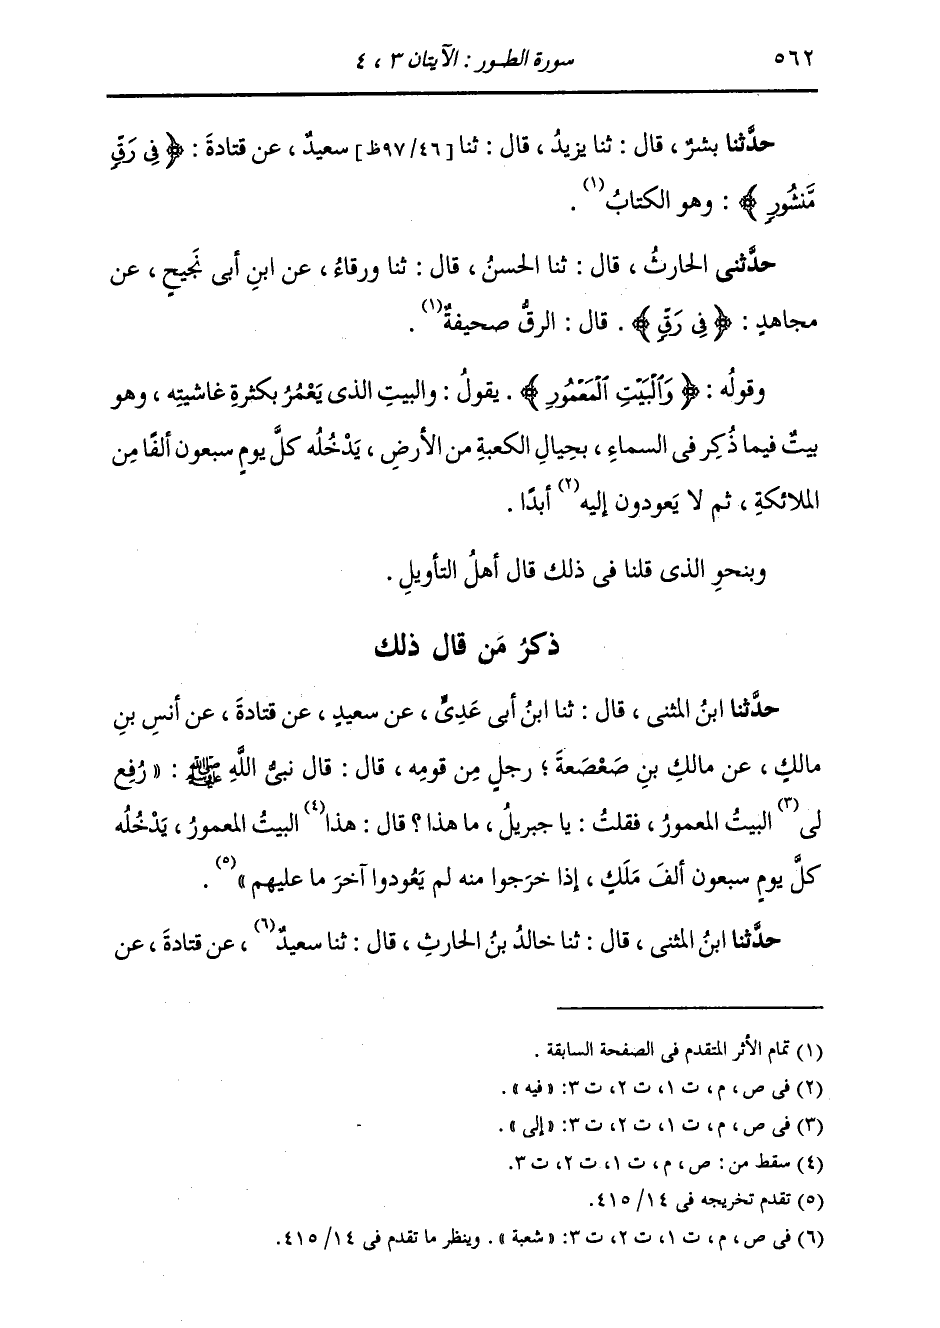 ٥٦٢
سورة الطور : الآيتان ٣ ، ٤
حدَّثنا بشرٌ ، قال : ثنا يزيدُ ، قال : ثنا [٩٧/٤٦ظ] سعيدٌ ، عن قتادةَ : ﴿ فِى رَقٍّ
مَّنشُورٍ ﴾ : وهو الكتابُ(١) .
حدَّثنى الحارثُ ، قال : ثنا الحسنُ ، قال : ثنا ورقاءُ ، عن ابنِ أبى نَجيحٍ ، عن
مجاهدٍ : ﴿ فِى رَقٍّ ﴾ . قال : الرقُّ صحيفةٌ(١) .
وقولُه : ﴿ وَٱلْبَيْتِ ٱلْمَعْمُورِ ﴾ . يقولُ : والبيتِ الذى يَعْمُرُ بكثرةِ غاشيتِه ، وهو
بيتٌ فيما ذُكِر فى السماءِ ، بحِيالِ الكعبةِ من الأرضِ ، يَدْخُلُه كلَّ يومٍ سبعون ألفًا مِن
الملائكةِ ، ثم لا يَعودون إليه(٢) أبدًا .
وبنحوِ الذى قلنا فى ذلك قال أهلُ التأويلِ .
ذكرُ مَن قال ذلك
حدَّثنا ابنُ المثنى ، قال : ثنا ابنُ أبى عَدِىٍّ ، عن سعيدٍ ، عن قتادةَ ، عن أنسِ بنِ
مالكٍ ، عن مالكِ بنِ صَعْصَعةَ ؛ رجلٍ مِن قومِه ، قال : قال نبىُّ اللَّهِ ﷺ : « رُفِع
لى(٣) البيتُ المعمورُ ، فقلتُ : يا جبريلُ ، ما هذا ؟ قال : هذا(٤) البيتُ المعمورُ ، يَدْخُلُه
كلَّ يومٍ سبعون ألفَ مَلَكٍ ، إذا خرَجوا منه لم يَعُودوا آخرَ ما عليهم »(٥) .
حدَّثنا ابنُ المثنى ، قال : ثنا خالدُ بنُ الحارثِ ، قال : ثنا سعيدٌ(٦) ، عن قتادةَ ، عن
(١) تمام الأثر المتقدم فى الصفحة السابقة .
(٢) فى ص ، م ، ت ١، ت ٢، ت ٣: « فيه » .
(٣) فى ص ، م ، ت ١، ت ٢، ت ٣: « إلى » .
(٤) سقط من : ص ، م ، ت ١، ت ٢، ت ٣.
(٥) تقدم تخريجه فى ١٤/ ٤١٥.
(٦) فى ص ، م ، ت ١، ت ٢، ت ٣: « شعبة » . وينظر ما تقدم فى ١٤/ ٤١٥.